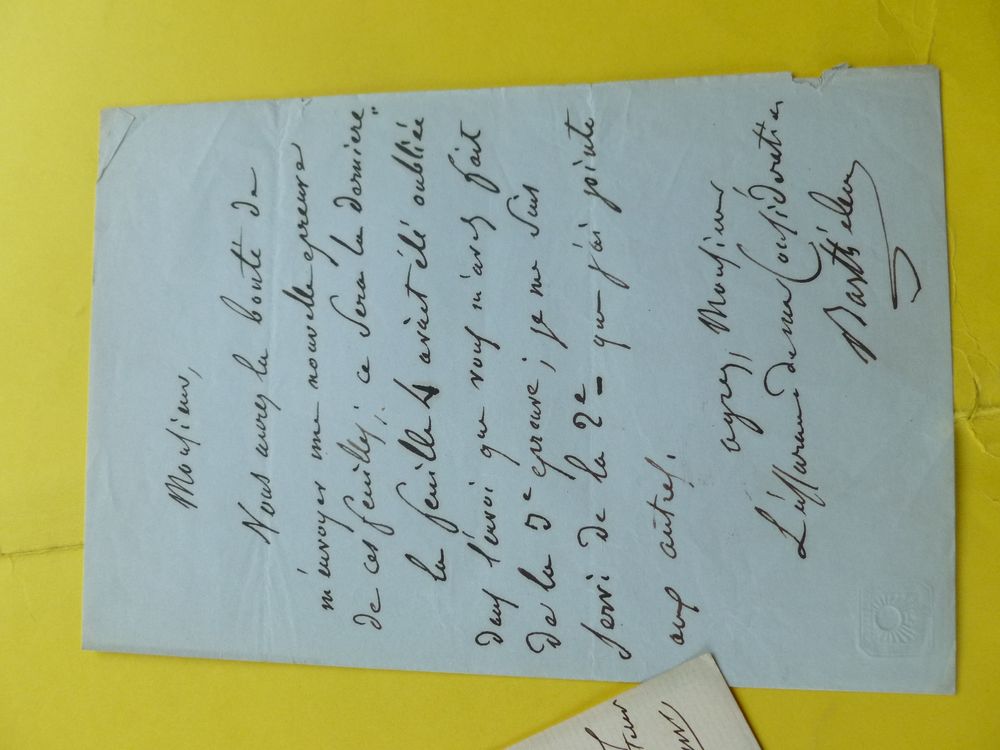 Monsieur,
Vous aurez la bonté de
m'envoyer une nouvelle epreuve
de ces feuilles; ce sera la derniere"
la feuille 4 avait été oubliée
dans l'envoi que vous m'avez fait
de la 3e epreuve; je me suis
servi de la 2e – que j'ai jointe
aux autres.
agrez, Monsieur
L'assurance de ma Consideration
Barthélemy